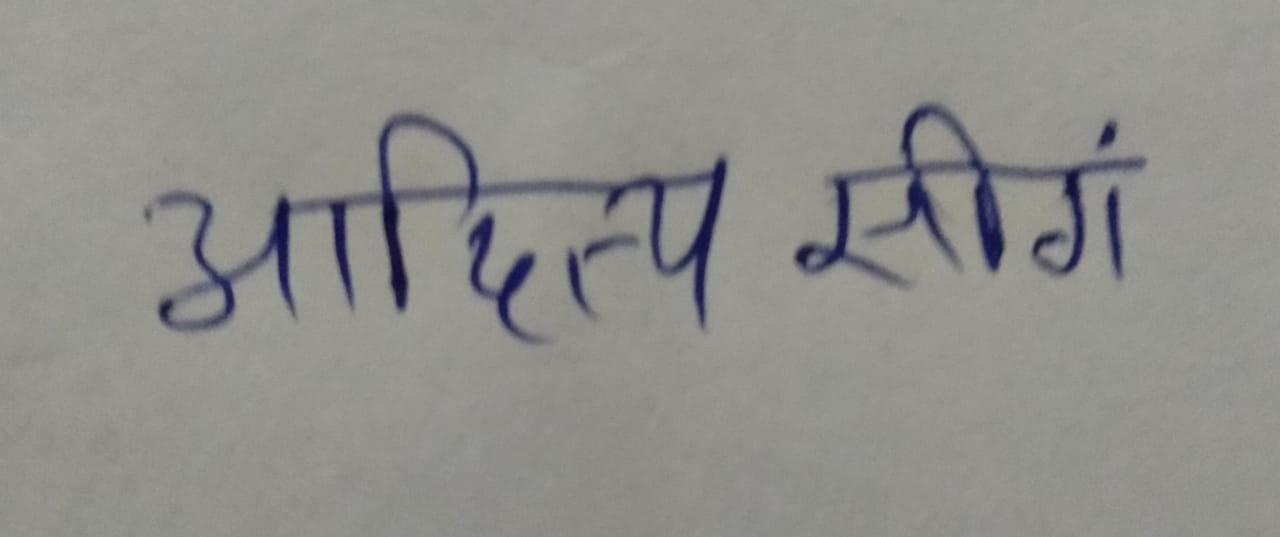 आदित्य सीगं